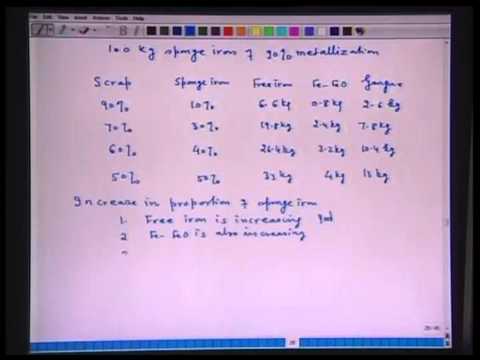 100 kg sponge iron of 90% metallization
Scrap Sponge iron Free iron Fe-FeO Gangue
90% 10% 6.6 kg 0.8 kg 2.6 kg
70% 30% 19.8 kg 2.4 kg 7.8 kg
60% 40% 26.4 kg 3.2 kg 10.4 kg
50% 50% 33 kg 4 kg 13 kg
Increase in proportion of sponge iron
1. Free iron is increasing good
2 Fe-FeO is also increasing